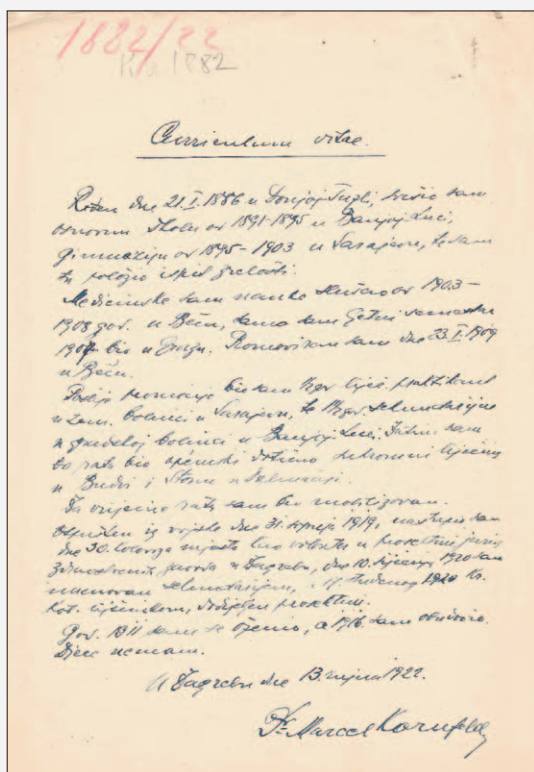 1882/22
1882
Curriculum vitae.
Rođen dne 21.I.1886 u Donjoj Tuzli, svršio sam
osnovnu školu od 1891-1895 u Banjoj Luci,
gimnaziju od 1895-1903 u Sarajevu, te sam
tu položio ispit zrelosti.
Medicinske sam nauke slušao od 1903-
1908 god. u Beču, samo sam ljetni semestar
1907 bio u Grazu. Promoviran sam dne 23.I.1909
u Beču.
Poslije promocije bio sam liječ. praktikant
u zem. bolnici u Sarajevu, te sekundarijem
u gradskoj bolnici u Banjoj Luci. Zatim sam
do rata bio općinski liječnik
u Budvi i Stonu u Dalmaciji.
Za vrijeme rata sam bio mobilizovan.
Otpušten iz vojske dne 31. srpnja 1919, nastupio sam
dne 30. kolovoza mjesto kod prosekturi
u Zagrebu, dne 10. siječnja 1920 sam
imenovan sekundarijem, a studenog 1920 kr.
kot. liječnikom, dodijeljen prosekturi.
God. 1911 sam se oženio, a 1916 sam obudovio.
Djece nemam.
U Zagrebu dne 13. rujna 1922.
Dr Marcel Kornfeld